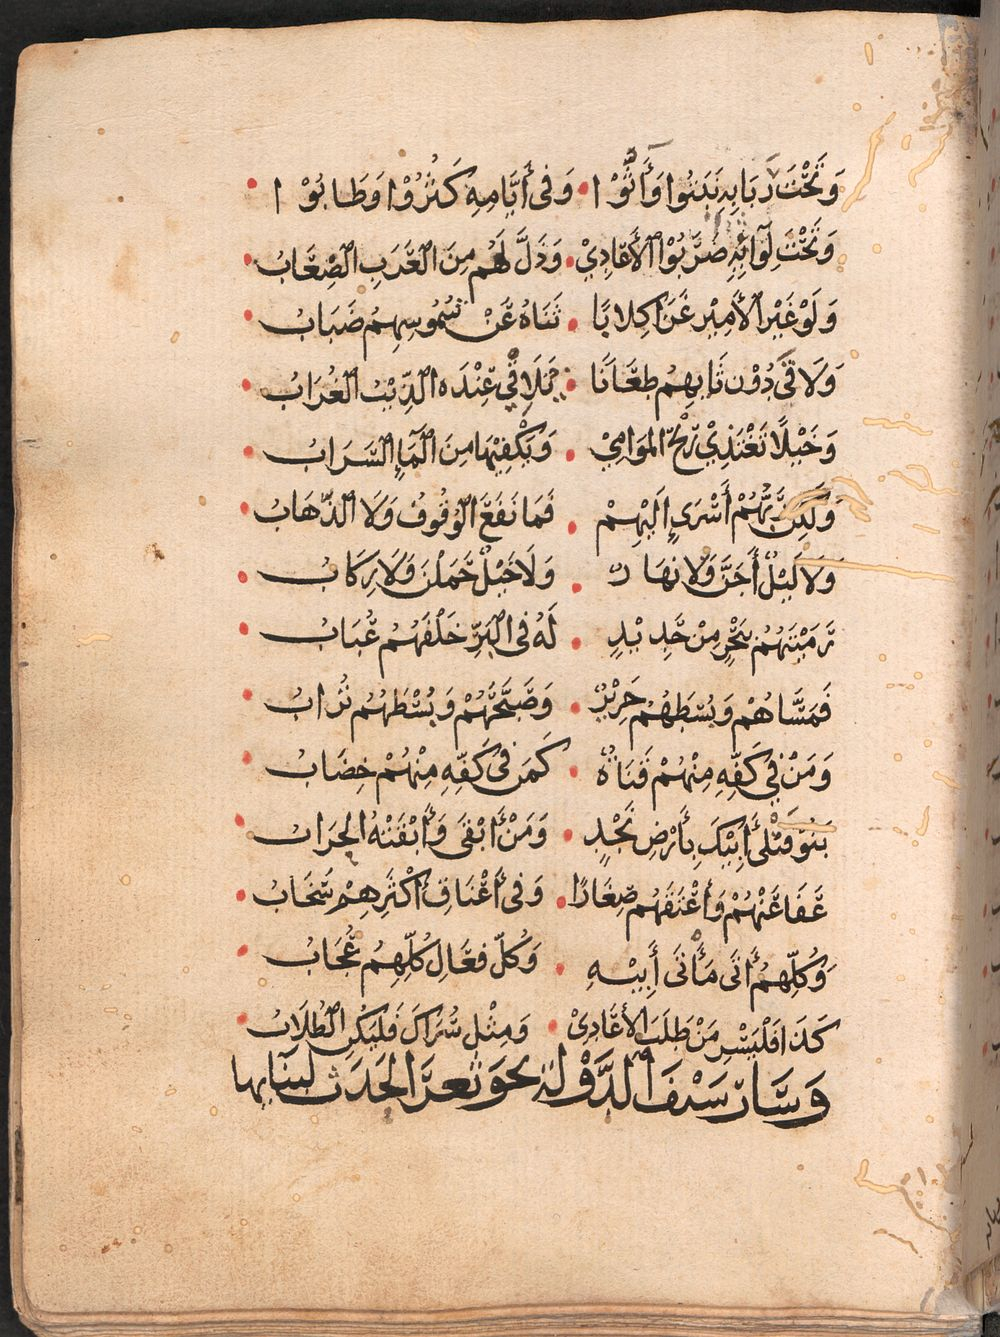 وَتَحْتَ رَبَابِهِ نَبَتُوا وَأَثُّوْا • وَفِى أَيَّامِهِ كَثُرُوْا وَطَابُوْا •
وَتَحْتَ لِوَآئِهِ ضَرَبُوْا الْأَعَادِيْ • وَذَلَّ لَهُم مِنَ الْعَرَبِ الصِّعَابُ •
وَلَوْ غَيْرُ الأَمِيْرِ غَزَا كِلَابًا • ثَنَاهُ عَنْ شُمُوسِهِمُ ضَبَابُ •
وَلَاقَى دُوْن ثَايِهِمُ طِعَانًا • يُلَاقِي عِنْدَهُ الذِّيْبَ الْغُرَابُ •
وَخَيْلًا تَغْتَذِيْ رِيْحَ المَوَامِيْ • وَيَكْفِيْهَا مِنَ الْمَآءِ السَّرَابُ •
وَلَكِنْ رَبُّهُمْ أَسْرَى إِلَيْهِمْ • فَمَا نَفَعَ الْوُقُوفُ وَلَا الذَّهَابُ •
وَلَا لَيْلٌ أَجَنَّ وَلَا نهَارٌ • وَلَا خَيْلٌ حَمَلْنَ وَلَا رِكَابُ •
رَمَيْتَهُمُ بِبَحْرٍ مِنْ حَدِيْدٍ • لَهُ فِى الْبَرِّ خَلْفَهُمُ عُبَابُ •
فَمَسَّاهُمْ وَبُسْطُهُمُ حَرِيْرٌ • وَصَبَّحَهُمْ وَبُسْطُهُمُ تُرَابُ •
وَمَنْ فِي كَفِّهِ مِنْهُمْ قَنَاةٌ • كَمَن فِى كَفِّهِ مِنْهُمْ خِضَابُ •
بَنُوْ قَتْلَى أَبِيْكَ بِأَرْضِ نَجْدٍ • وَمَنْ أَبْقَى وَأَبْقَتْهُ الحِرَابُ •
عَفَا عَنْهُمْ وَأَعْتَقَهُم صِغَارًا • وَفِى أَعْنَاقِ أَكْثَرِهِمْ سِخَابُ •
وَكُلُّهُمُ أَتَى مَأْتَى أَبِيْهِ • وَكُلُّ فِعَالِ كُلِّهِمُ عُجَابُ •
كَذَا فَلْيَسْرِ مَنْ طَلَبَ الأَعَادِيْ • وَمِثْلَ سُرَاكَ فَلْيَكُنِ الطِّلَابُ •
وَسَارَ سَيْفُ الدَّوْلَةِ نحوَ ثَغرِ الحَدَث لبنَايها